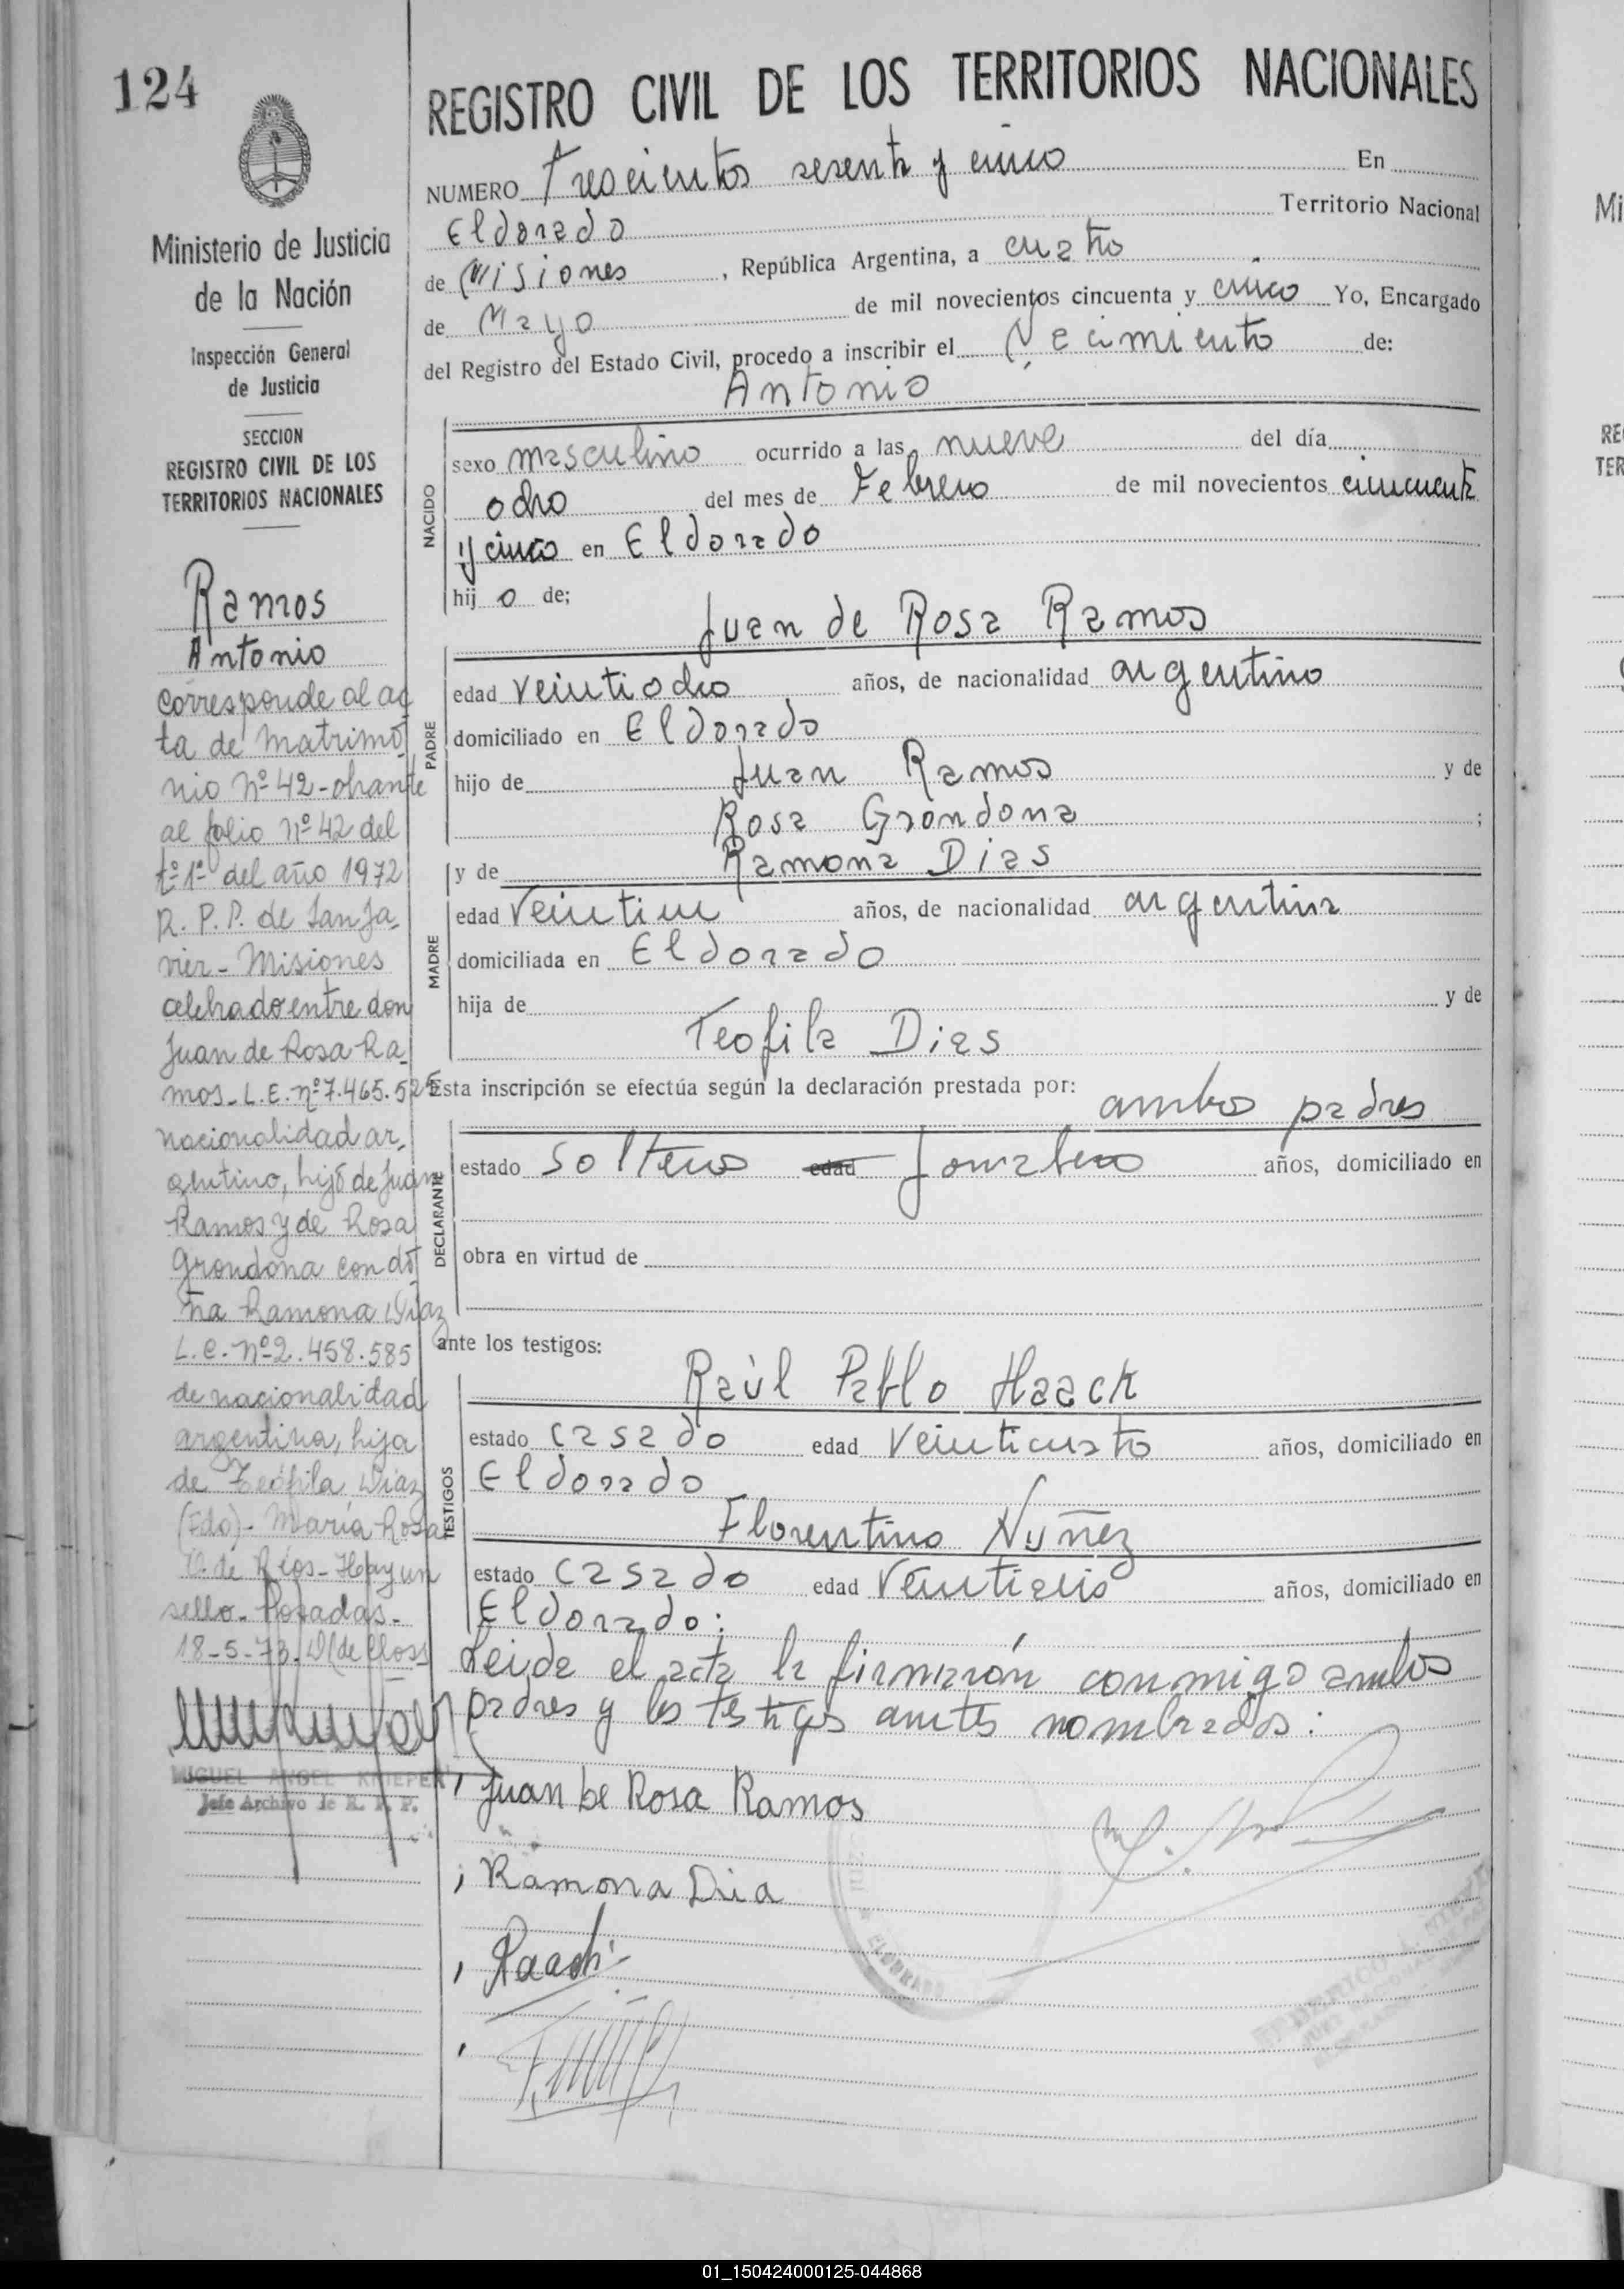 124
REGISTRO CIVIL DE LOS TERRITORIOS NACIONALES
Ministerio de Justicia
de la Nación
Inspección General
de Justicia
SECCION
REGISTRO CIVIL DE LOS
TERRITORIOS NACIONALES
Ramos
Antonio
corresponde al ac
ta de matrimo
nio nº 42 - obrante
al folio nº 42 del
tº 1º del año 1972
R. P. P. de San Ja-
vier - Misiones
celebrado entre don
Juan de Rosa Ra-
mos - L.E. nº 7.465.525
nacionalidad ar-
gentino, hijo de Juan
Ramos y de Rosa
Grondona con do
ña Ramona Diaz
L.C. nº 2.458.585
de nacionalidad
argentina, hija
de Teófila Diaz
(Fdo) - María Rosa
de Ríos - Hay un
sello - Posadas -
18-5-73
MIGUEL ANGEL KNIEPER
Jefe Archivo de R. P. P.
NUMERO Trescientos sesenta y cinco En
Eldorado Territorio Nacional
de Misiones, República Argentina, a cuatro
de Mayo de mil novecientos cincuenta y cinco Yo, Encargado
del Registro del Estado Civil, procedo a inscribir el Nacimiento de:
Antonio
NACIDO
sexo masculino ocurrido a las nueve del día
ocho del mes de Febrero de mil novecientos cincuenta
y cinco en Eldorado
hij o de;
Juan de Rosa Ramos
PADRE
edad veintiocho años, de nacionalidad argentino
domiciliado en Eldorado
hijo de Juan Ramos y de
Rosa Grondona ;
y de Ramona Dias
MADRE
edad veintiun años, de nacionalidad argentina
domiciliada en Eldorado
hija de y de
Teofila Dias
Esta inscripción se efectúa según la declaración prestada por:
ambos padres
DECLARANTE
estado soltero edad jornalero años, domiciliado en
obra en virtud de
ante los testigos:
TESTIGOS
Raúl Pablo Haack
estado casado edad veinticuatro años, domiciliado en
Eldorado
Florentino Nuñez
estado casado edad veintiseis años, domiciliado en
Eldorado:
Leida el acta la firmarón conmigo ambos
padres y los testigos antes nombrados:
Juan de Rosa Ramos
Ramona Dia
Haack
ELDORADO
01_150424000125-044868